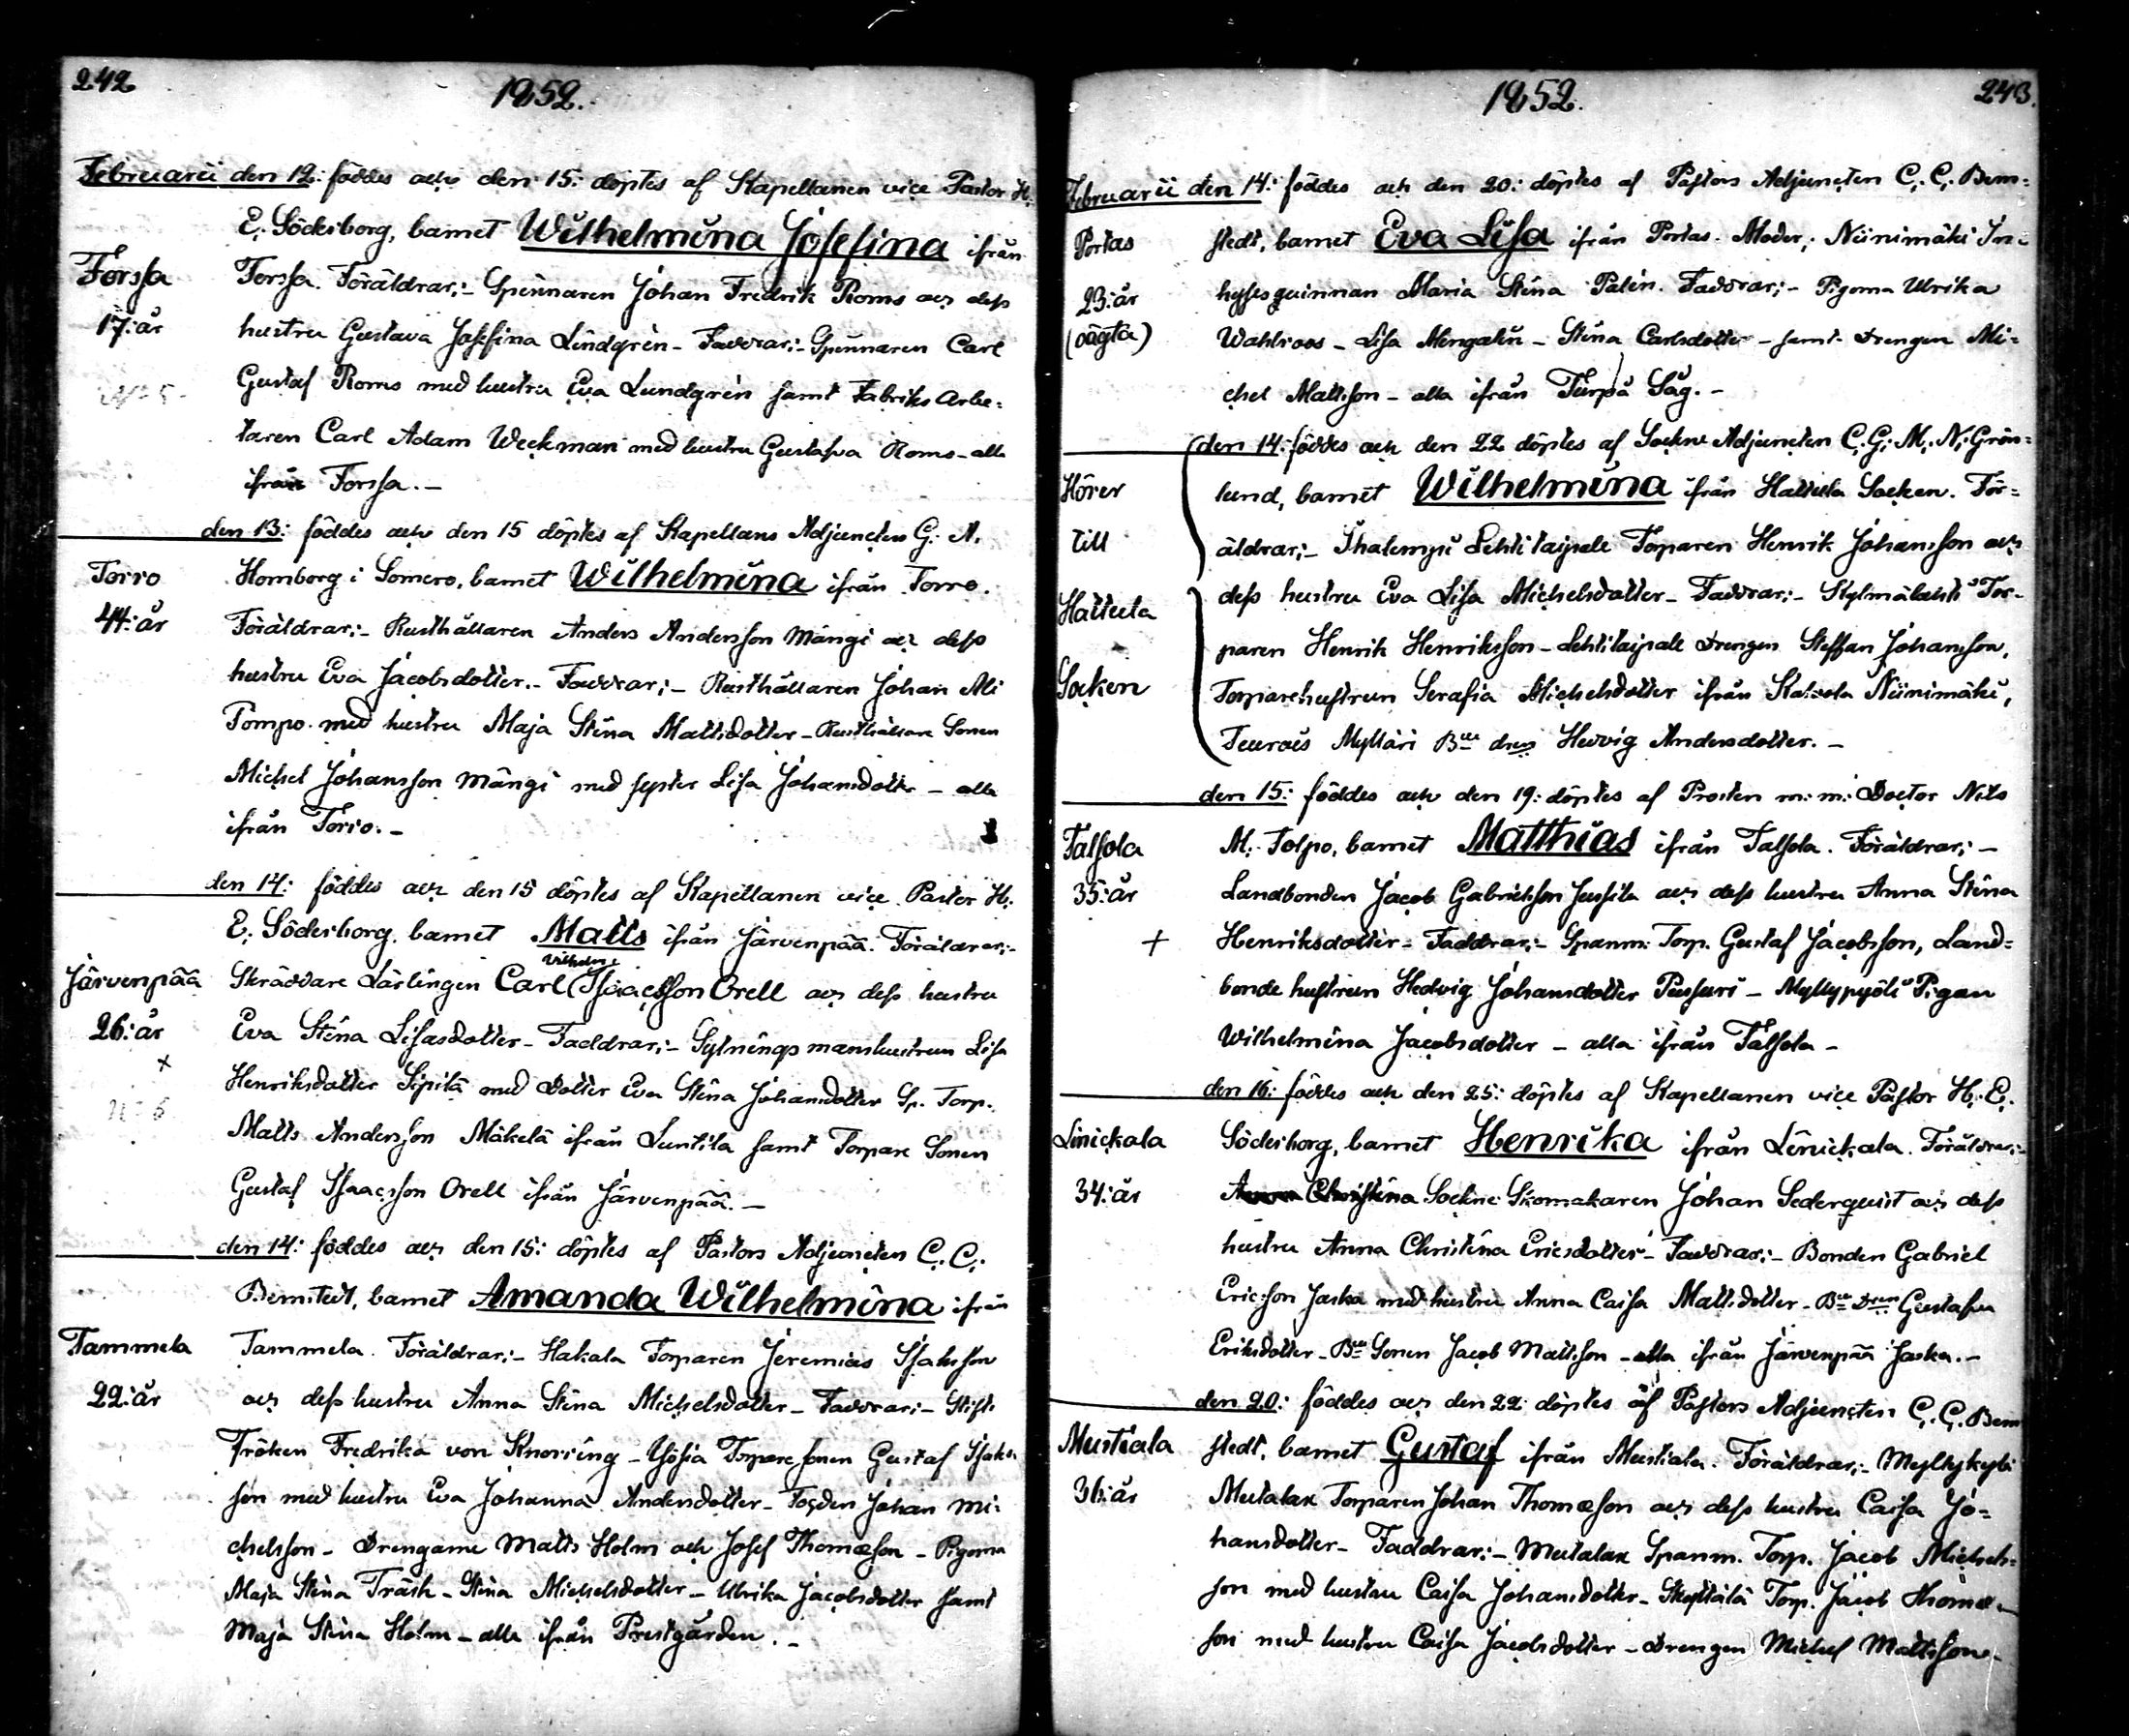 242
1852.
Februarii den 12: föddes och den 15: döptes af Kapellanen vice Pastor H.
E. Söderborg, barnet Wilhelmina Josefina ifrån
Forssa
Forssa. Föräldrar:- Spinnaren Johan Fredrik Roms och dess
17: år
hustru Gustava Josefina Lindgrén - Faddrar:- Spinnaren Carl
Nº 5
Gustaf Roms med hustru Eva Lundgrén samt Fabriks Arbe-
taren Carl Adam Weckman med hustru Gustafva Roms - alla
ifrån Forssa. -
den 13: föddes och den 15 döptes af Kapellans Adjuncten G. A.
Torro
Homborg i Somero, barnet Wilhelmina ifrån Torro.
44: år
Föräldrar:- Rusthållaren Anders Andersson Mängi och dess
hustru Eva Jacobsdotter. - Faddrar:- Rusthållaren Johan Ali
Pompo med hustru Maja Stina Mattsdotter - Rusthållare Sonen
Michel Johansson Mängi med syster Lisa Johansdotter - alla
ifrån Torro. -
den 14: föddes och den 15 döptes af Kapellanen vice Pastor H.
E. Söderborg, barnet Matts ifrån Järvenpää. Föräldrar:-
Vilhelm
Järvenpää
Skräddare Lärlingen Carl (Isaacsson Orell och dess hustru
26: år
Eva Stina Lisasdotter - Faddrar:- Sytningsmanshustrun Lisa
+
Henriksdotter Sipilä med Dotter Eva Stina Johansdotter Sp. Torp.
Nº 6
Matts Andersson Mäkelä ifrån Luntila samt Torpare Sonen
Gustaf Isaacsson Orell ifrån Järvenpää. -
den 14: föddes och den 15: döptes af Pastors Adjuncten C. C.
Bernstedt, barnet Amanda Wilhelmina ifrån
Tammela
Tammela. Föräldrar:- Hakala Torparen Jeremias Isaksson
22: år
och dess hustru Anna Stina Michelsdotter - Faddrar:- Stifts
Fröken Fredrika von Knorring - Torpare sonen Gustaf Isaks-
son med hustru Eva Johanna Andersdotter - Johan Mi-
chelsson - Drengarne Matts Holm och Josef Thomasson - Pigorna
Maja Stina Träsk - Stina Michelsdotter - Ulrika Jacobsdotter samt
Maja Stina Holm - alla ifrån Prestgården. -
1852.
243.
Februarii den 14: föddes och den 20: döptes af Pastors Adjuncten C. C. Bern-
Portas
stedt, barnet Eva Lisa ifrån Portas. Moder: Niinimäki In-
23: år
hysesquinnan Maria Stina Palin. Faddrar:- Pigorna Ulrika
(oägta)
Wahlroos - Lisa Mengalin - Stina Carlsdotter - samt Drengen Mi-
chel Mattsson - alla ifrån Turpå Såg. -
den 14: föddes och den 22 döptes af Sockne Adjuncten C. G. M. N. Grön-
Hörer
lund, barnet Wilhelmina ifrån Hattula Socken. För-
till
äldrar:- Ihalempi Lehtitaipale Torparen Henrik Johansson och
Hattula
dess hustru Eva Lisa Michelsdotter - Faddrar:- Kylmälahti Tor-
paren Henrik Henriksson - Lehtitaipale Drengen Steffan Johansson,
Socken
Torparehustrun Serafia Michelsdotter ifrån Kalvola Niinimäki,
Teurois Mylläri Bde drn Hedvig Andersdotter. -
den 15: föddes och den 19: döptes af Prosten m: m: Doctor Nils
Talsola
M. Tolpo, barnet Matthias ifrån Talsola. Föräldrar:-
35: år
Landbonden Jacob Gabrielsson Jussila och dess hustru Anna Stina
+
Henriksdotter - Faddrar:- Spanm. Torp. Gustaf Jacobsson, Land-
bonde hustrun Hedvig Johansdotter Pussuri - Myllypyöli Pigan
Wilhelmina Jacobsdotter - alla ifrån Talsola -
den 16: föddes och den 25: döptes af Kapellanen vice Pastor H. E.
Linickala
Söderborg, barnet Henrika ifrån Linickala. Föräldrar:-
34: år
Anna Christina Sockne Skomakaren Johan Sederquist och dess
hustru Anna Christina Ericsdotter - Faddrar:- Bonden Gabriel
Ericsson Jaska med hustru Anna Caisa Mattsdotter - Bde Dren Gustafva
Eriksdotter - Bde Sonen Jacob Mattsson - alla ifrån Järvenpää Jaska. -
den 20: föddes och den 22: döptes af Pastors Adjuncten C. C. Bern
Mustiala
stedt, barnet Gustaf ifrån Mustiala. Föräldrar:- Myllykylä
36: år
Metalax Torparen Johan Thomasson och dess hustru Caisa Jo-
hansdotter - Faddrar:- Metalax Spanm. Torp. Jacob Michels-
son med hustru Caisa Johansdotter - Skyttälä Torp. Jacob Thomas-
son med hustru Caisa Jacobsdotter - Drengen Michel Mattsson -